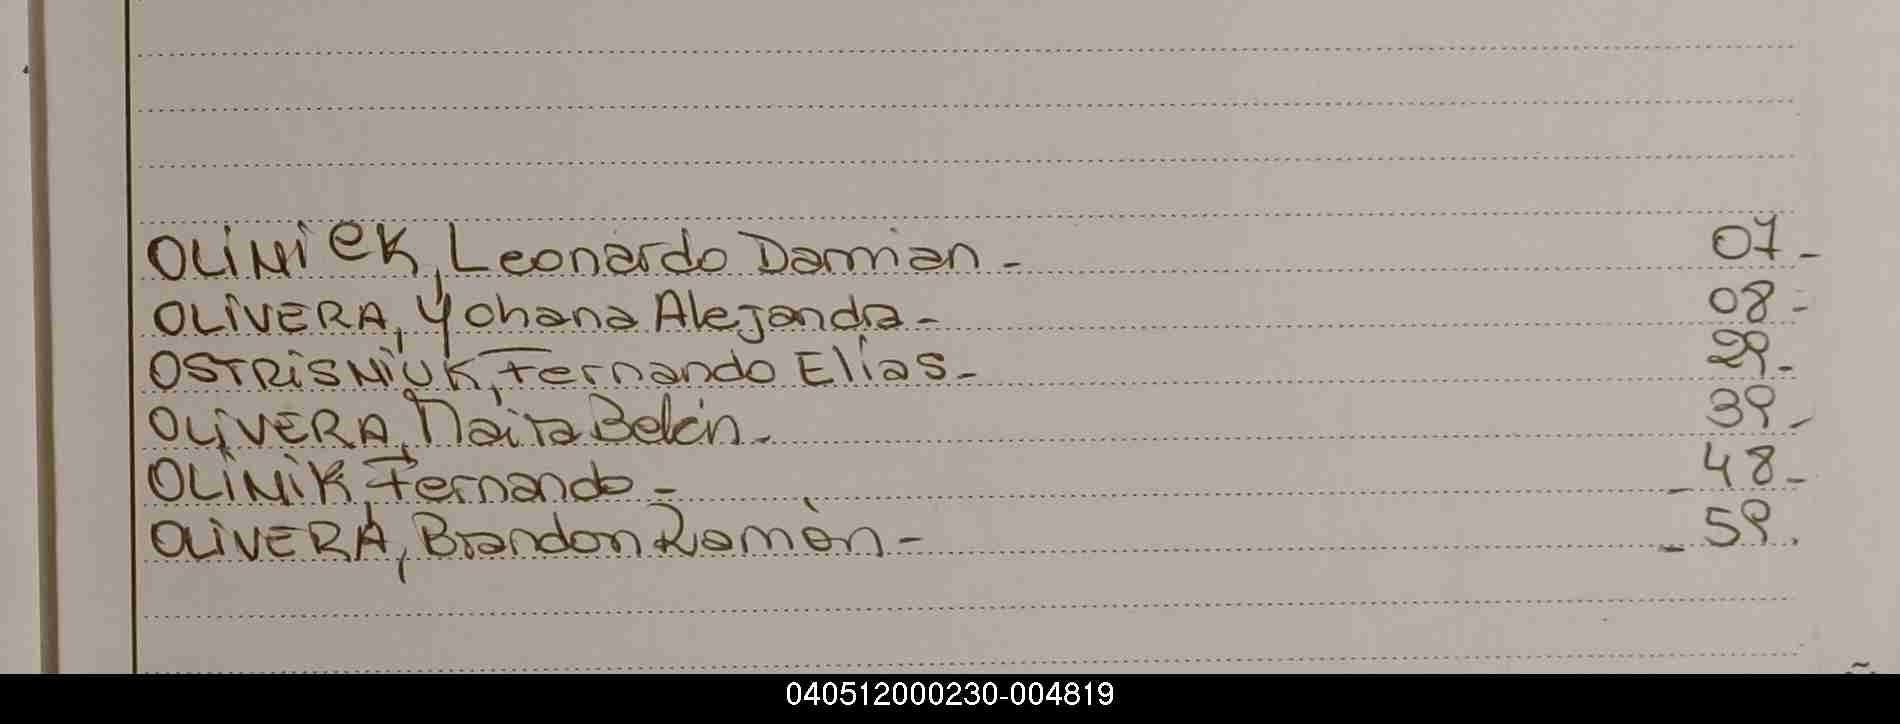 OLINIEK, Leonardo Damian - 07-
OLIVERA, Yohana Alejandra - 08-
OSTRISNIUK, Fernando Elias - 29-
OLIVERA, Naira Belén - 39-
OLINIK, Fernando - 48-
OLIVERA, Brandon Ramón - 59.
040512000230-004819